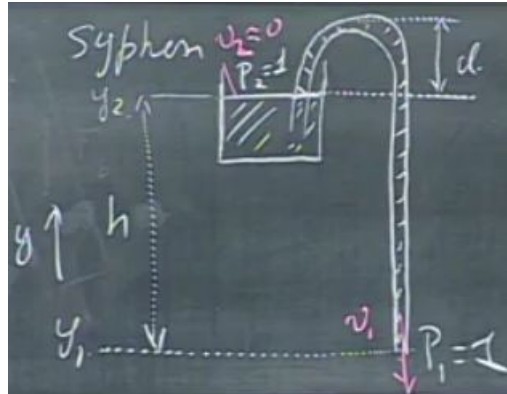 Syphon v₂=0
P₂=1
d
y₂
h
y
y₁
v₁
P₁=1